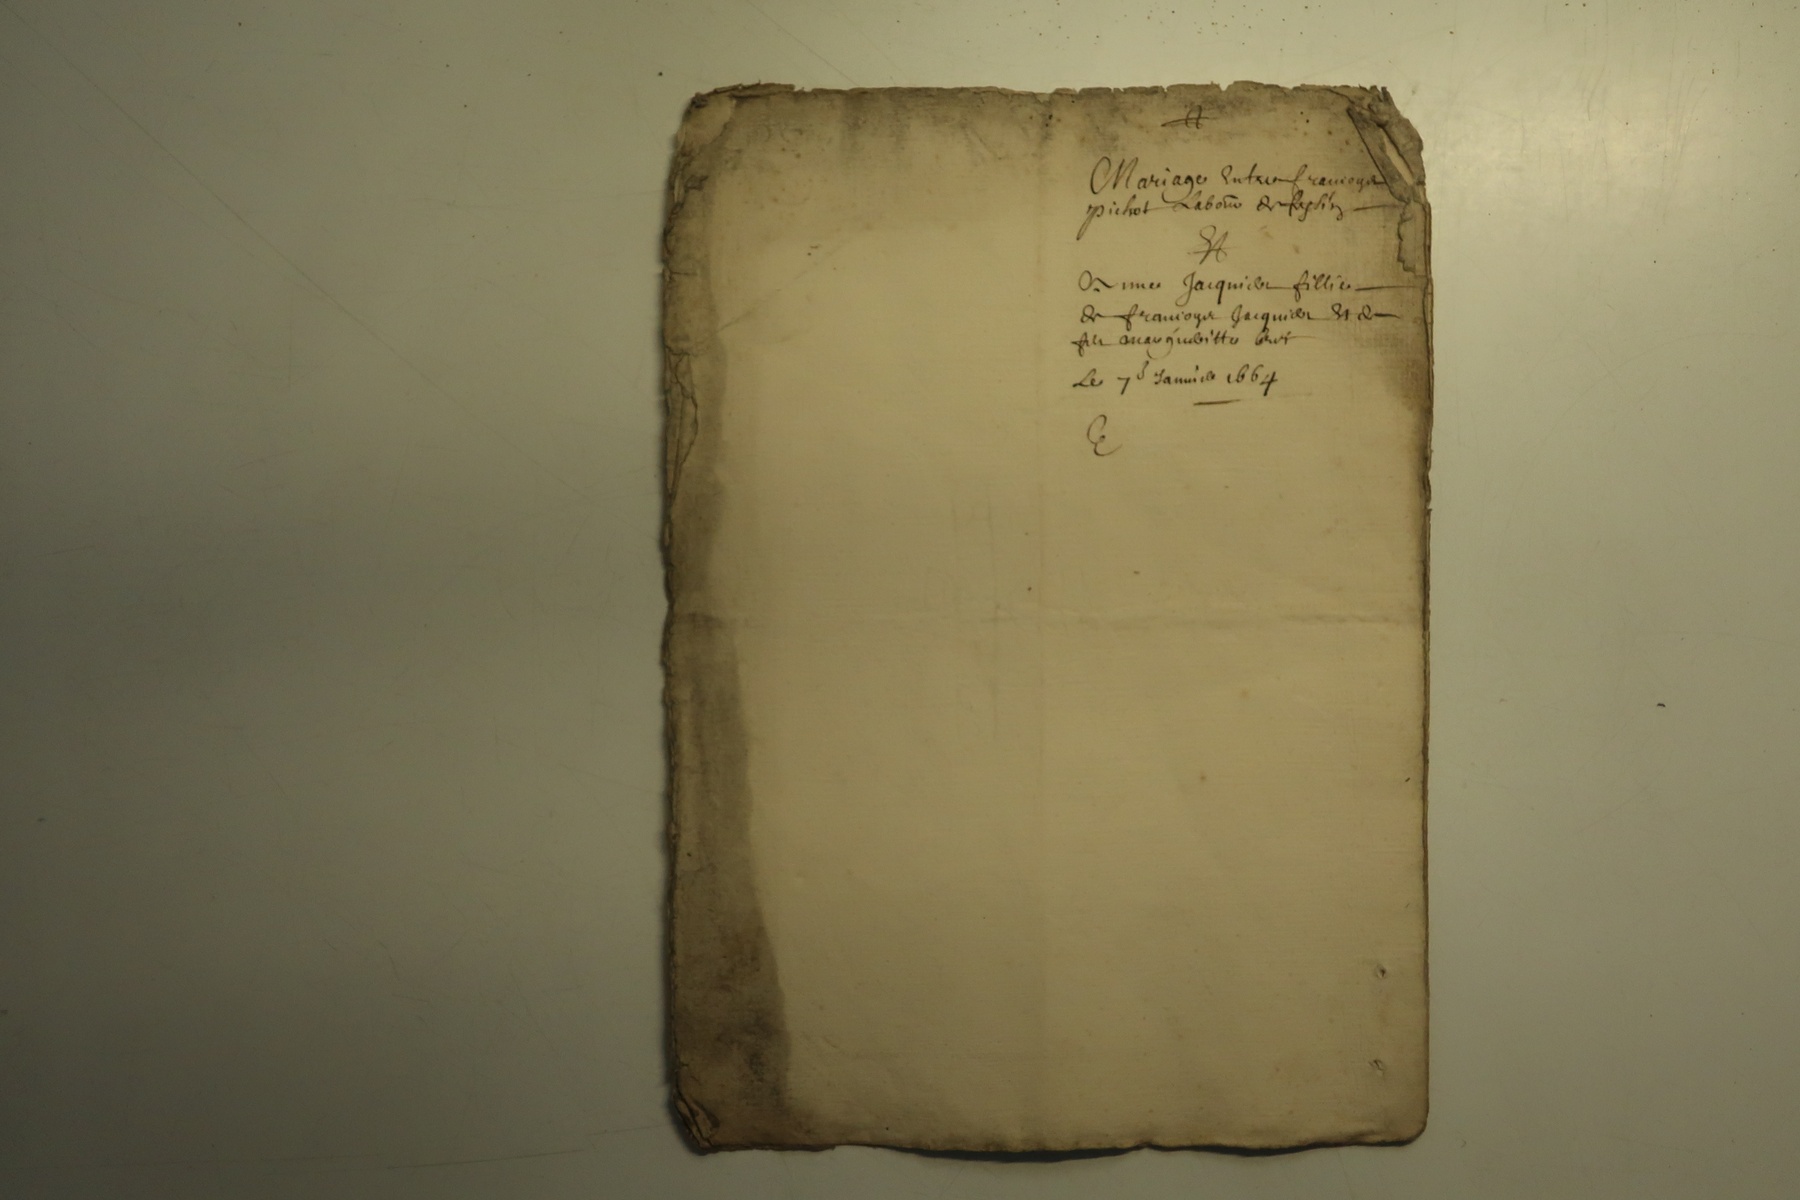 Mariage Entre francoys
pichot Labour de
Et
Anne Jacquier fillie
de francoys Jacquier Et de
feu margueritte
Le 7e Januier 1664